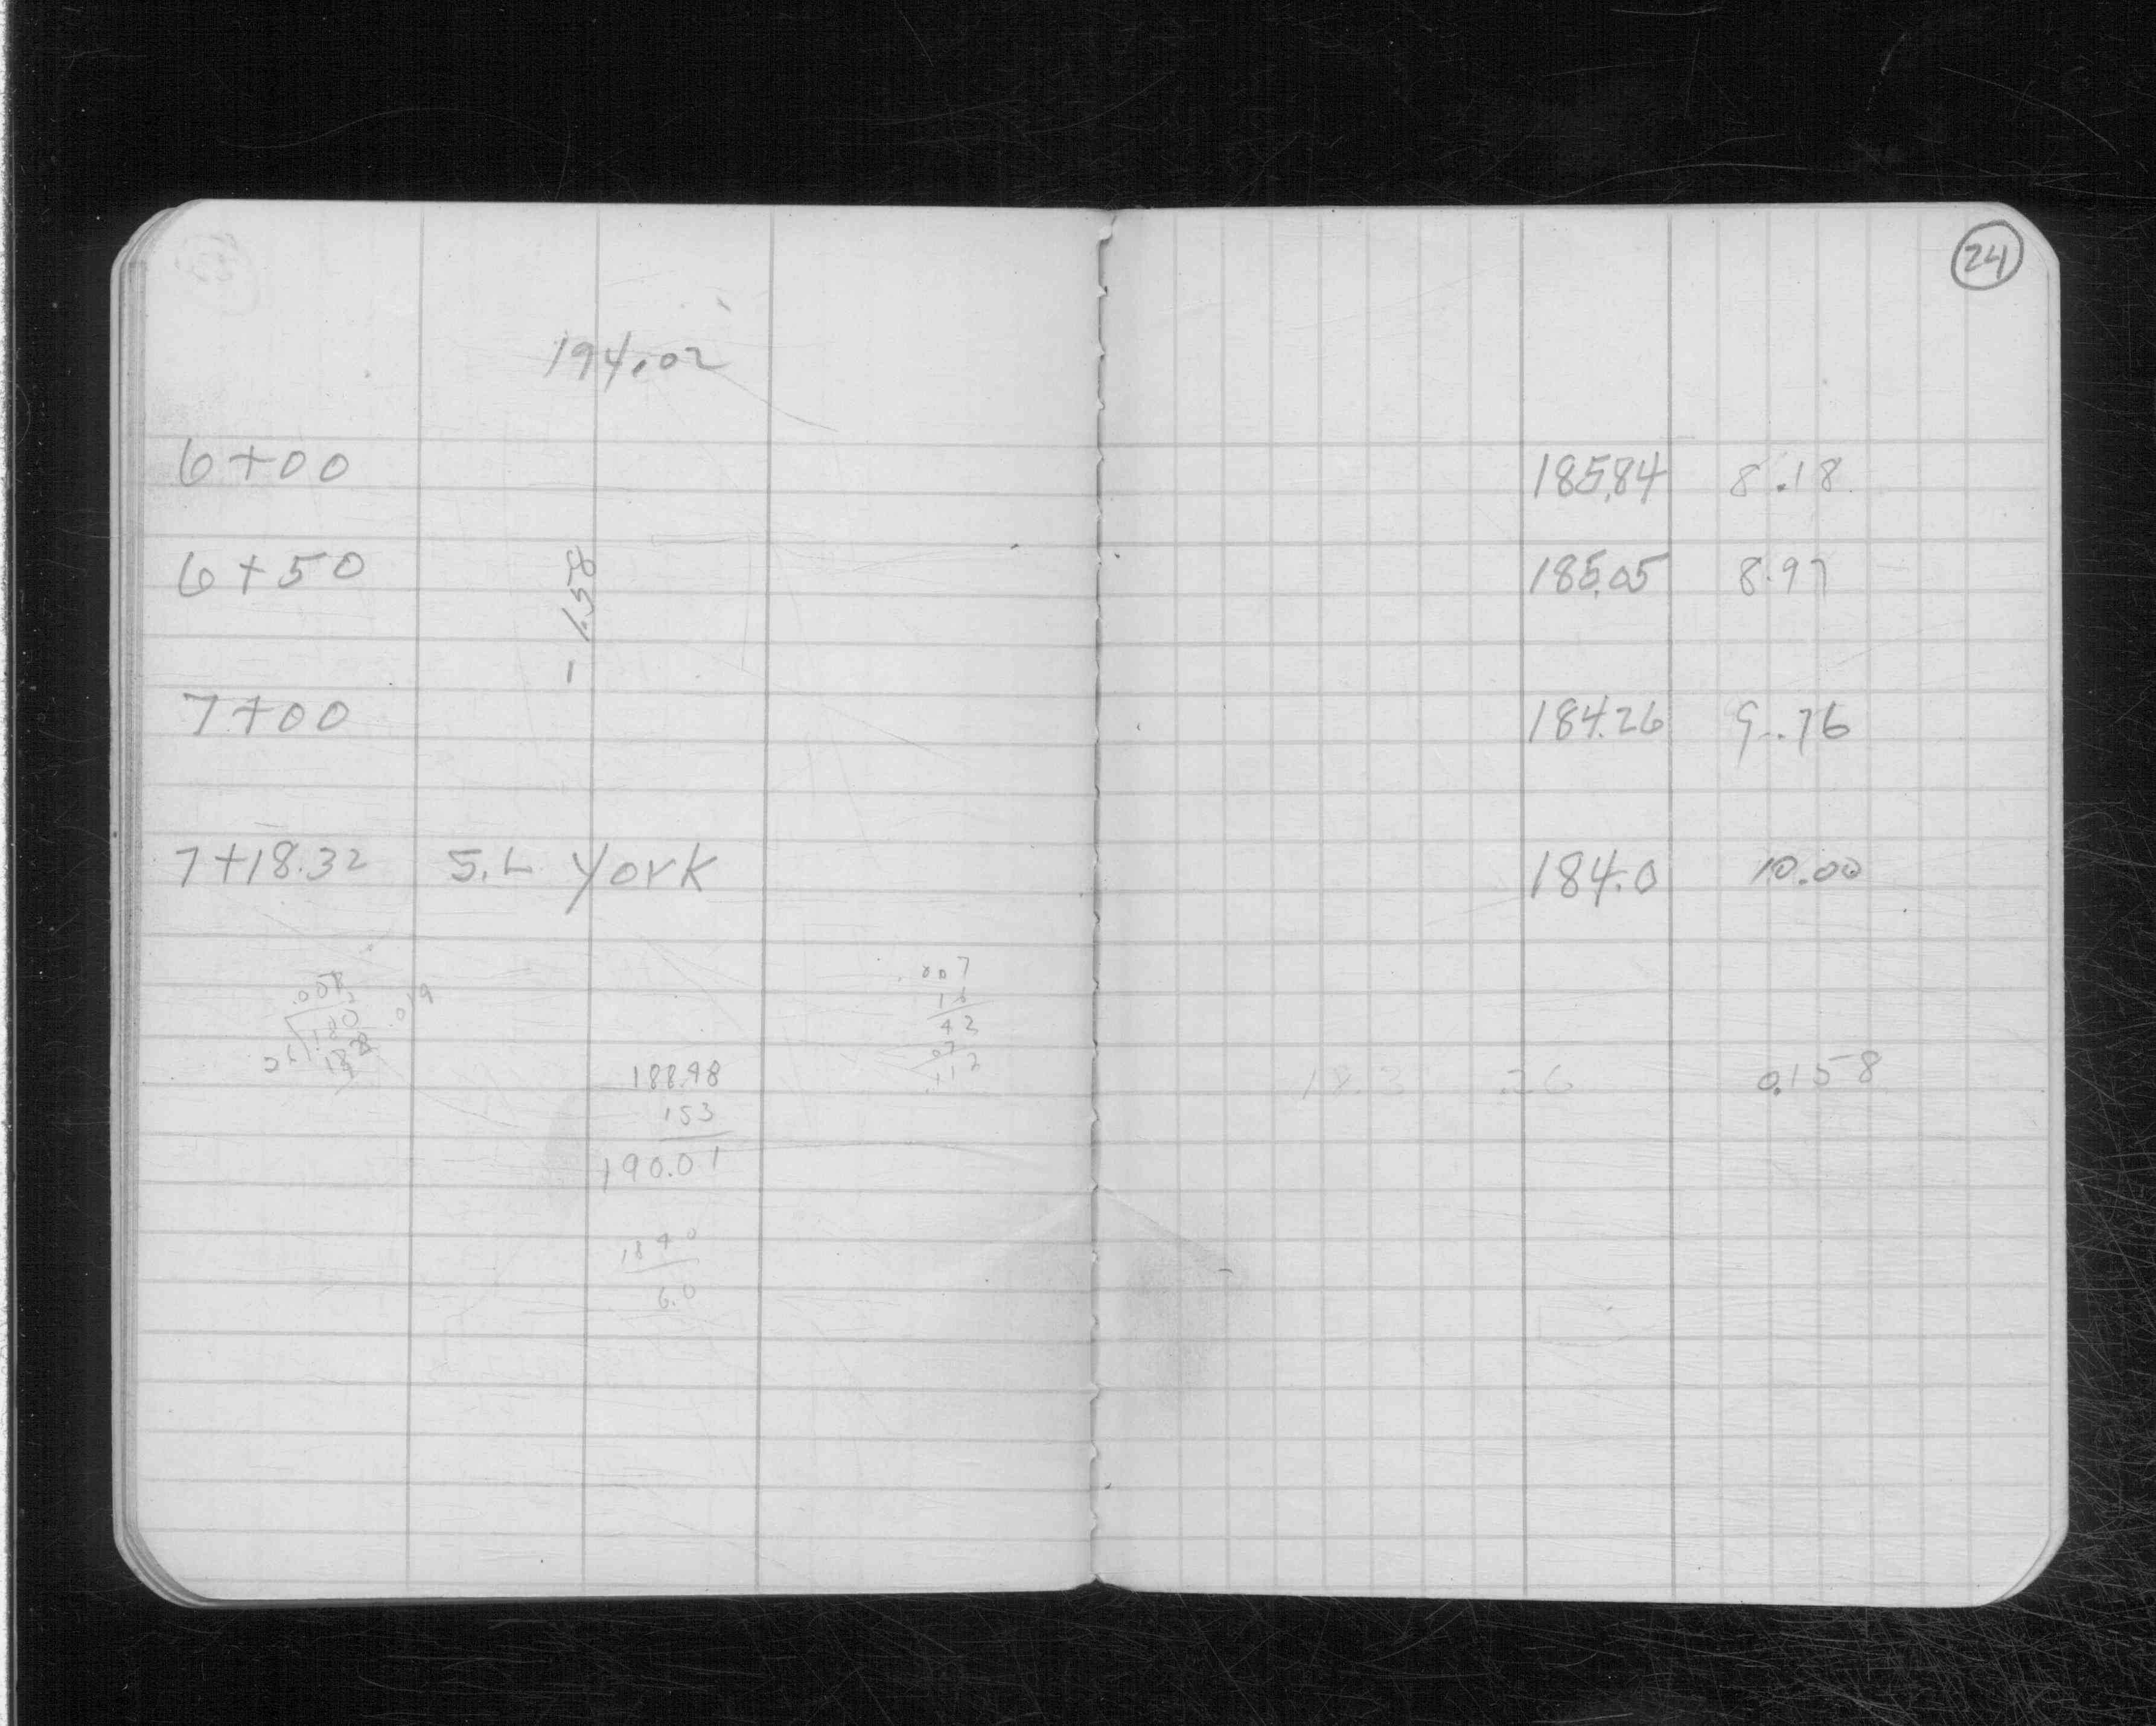 24
194.02
6+00 185.84 8.18
6+50 185.05 8.97
- 1.58
7+00 184.26 9.76
7+18.32 S.L York 184.0 10.00
.007
16
42
07
.112
.019
188.48
153
190.01
18.3 .26 0.158
184 0
6.0